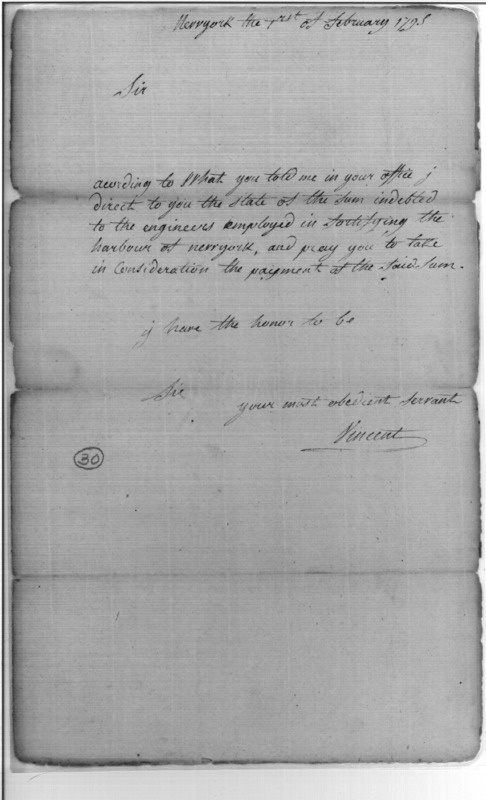 Newyork the 1rst of february 1795
Sir
acording to What you told me in your office j
direct to you the state of the sum indebted
to the engineers employed in fortifying the
harbour of newyork, and pray you to take
in Consideration the paiyment of the said sum.
j have the honor to be
Sir
your most obedient servant
Vincent
30